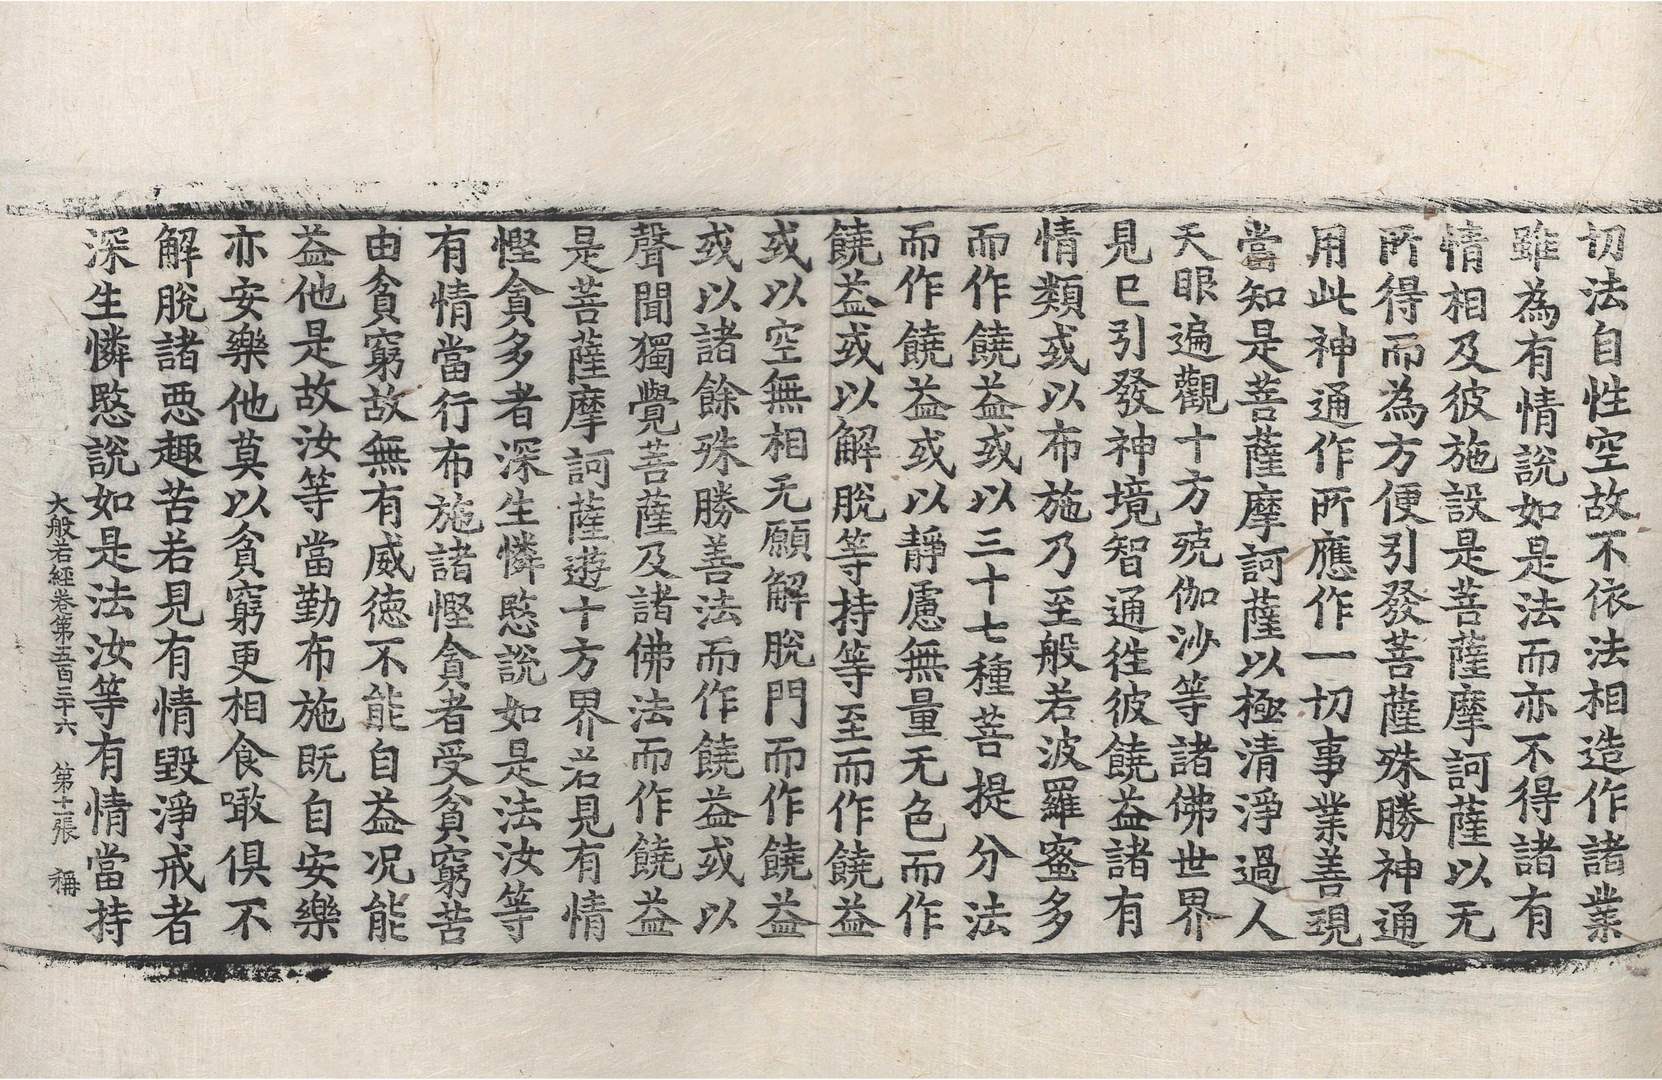 切法自性空故不依法相造作諸業
雖為有情說如是法而亦不得諸有
情相及彼施設是菩薩摩訶薩以无
所得而為方便引發菩薩殊勝神通
用此神通作所應作一切事業善現
當知是菩薩摩訶薩以極清淨過人
天眼遍觀十方殑伽沙等諸佛世界
見已引發神境智通往彼饒益諸有
情類或以布施乃至般若波羅蜜多
而作饒益或以三十七種菩提分法
而作饒益或以靜慮無量无色而作
饒益或以解脫等持等至而作饒益
或以空無相无願解脫門而作饒益
或以諸餘殊勝善法而作饒益或以
聲聞獨覺菩薩及諸佛法而作饒益
是菩薩摩訶薩遊十方界若見有情
慳貪多者深生憐愍說如是法汝等
有情當行布施諸慳貪者受貧窮苦
由貧窮故無有威德不能自益况能
益他是故汝等當勤布施既自安樂
亦安樂他莫以貧窮更相食噉俱不
解脫諸惡趣苦若見有情毀淨戒者
深生憐愍說如是法汝等有情當持
大般若經卷第五百三十六 第十一張 稱